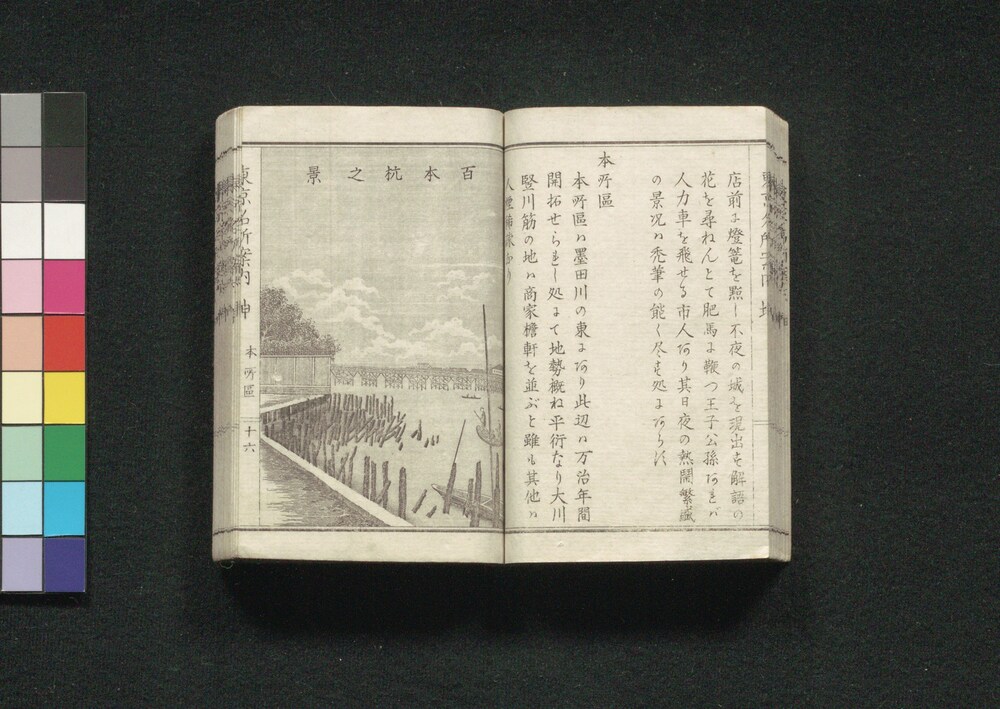 店前に燈篭を點し不夜の城を現出す解語の
花を尋ねんとて肥馬に鞭つ王子公孫あれバ
人力車を飛せる市人あり其日夜の熱閙繁盛
の景况ハ禿筆の能く尽す処にあらず
本所區
本所區ハ墨田川の東にあり此辺ハ万治年間
開拓せられし処にて地勢概ね平衍なり大川
竪川筋の地ハ商家檐軒を並ぶと雖も其他ハ
百本杭之景
東京名所案内
本所區
十六